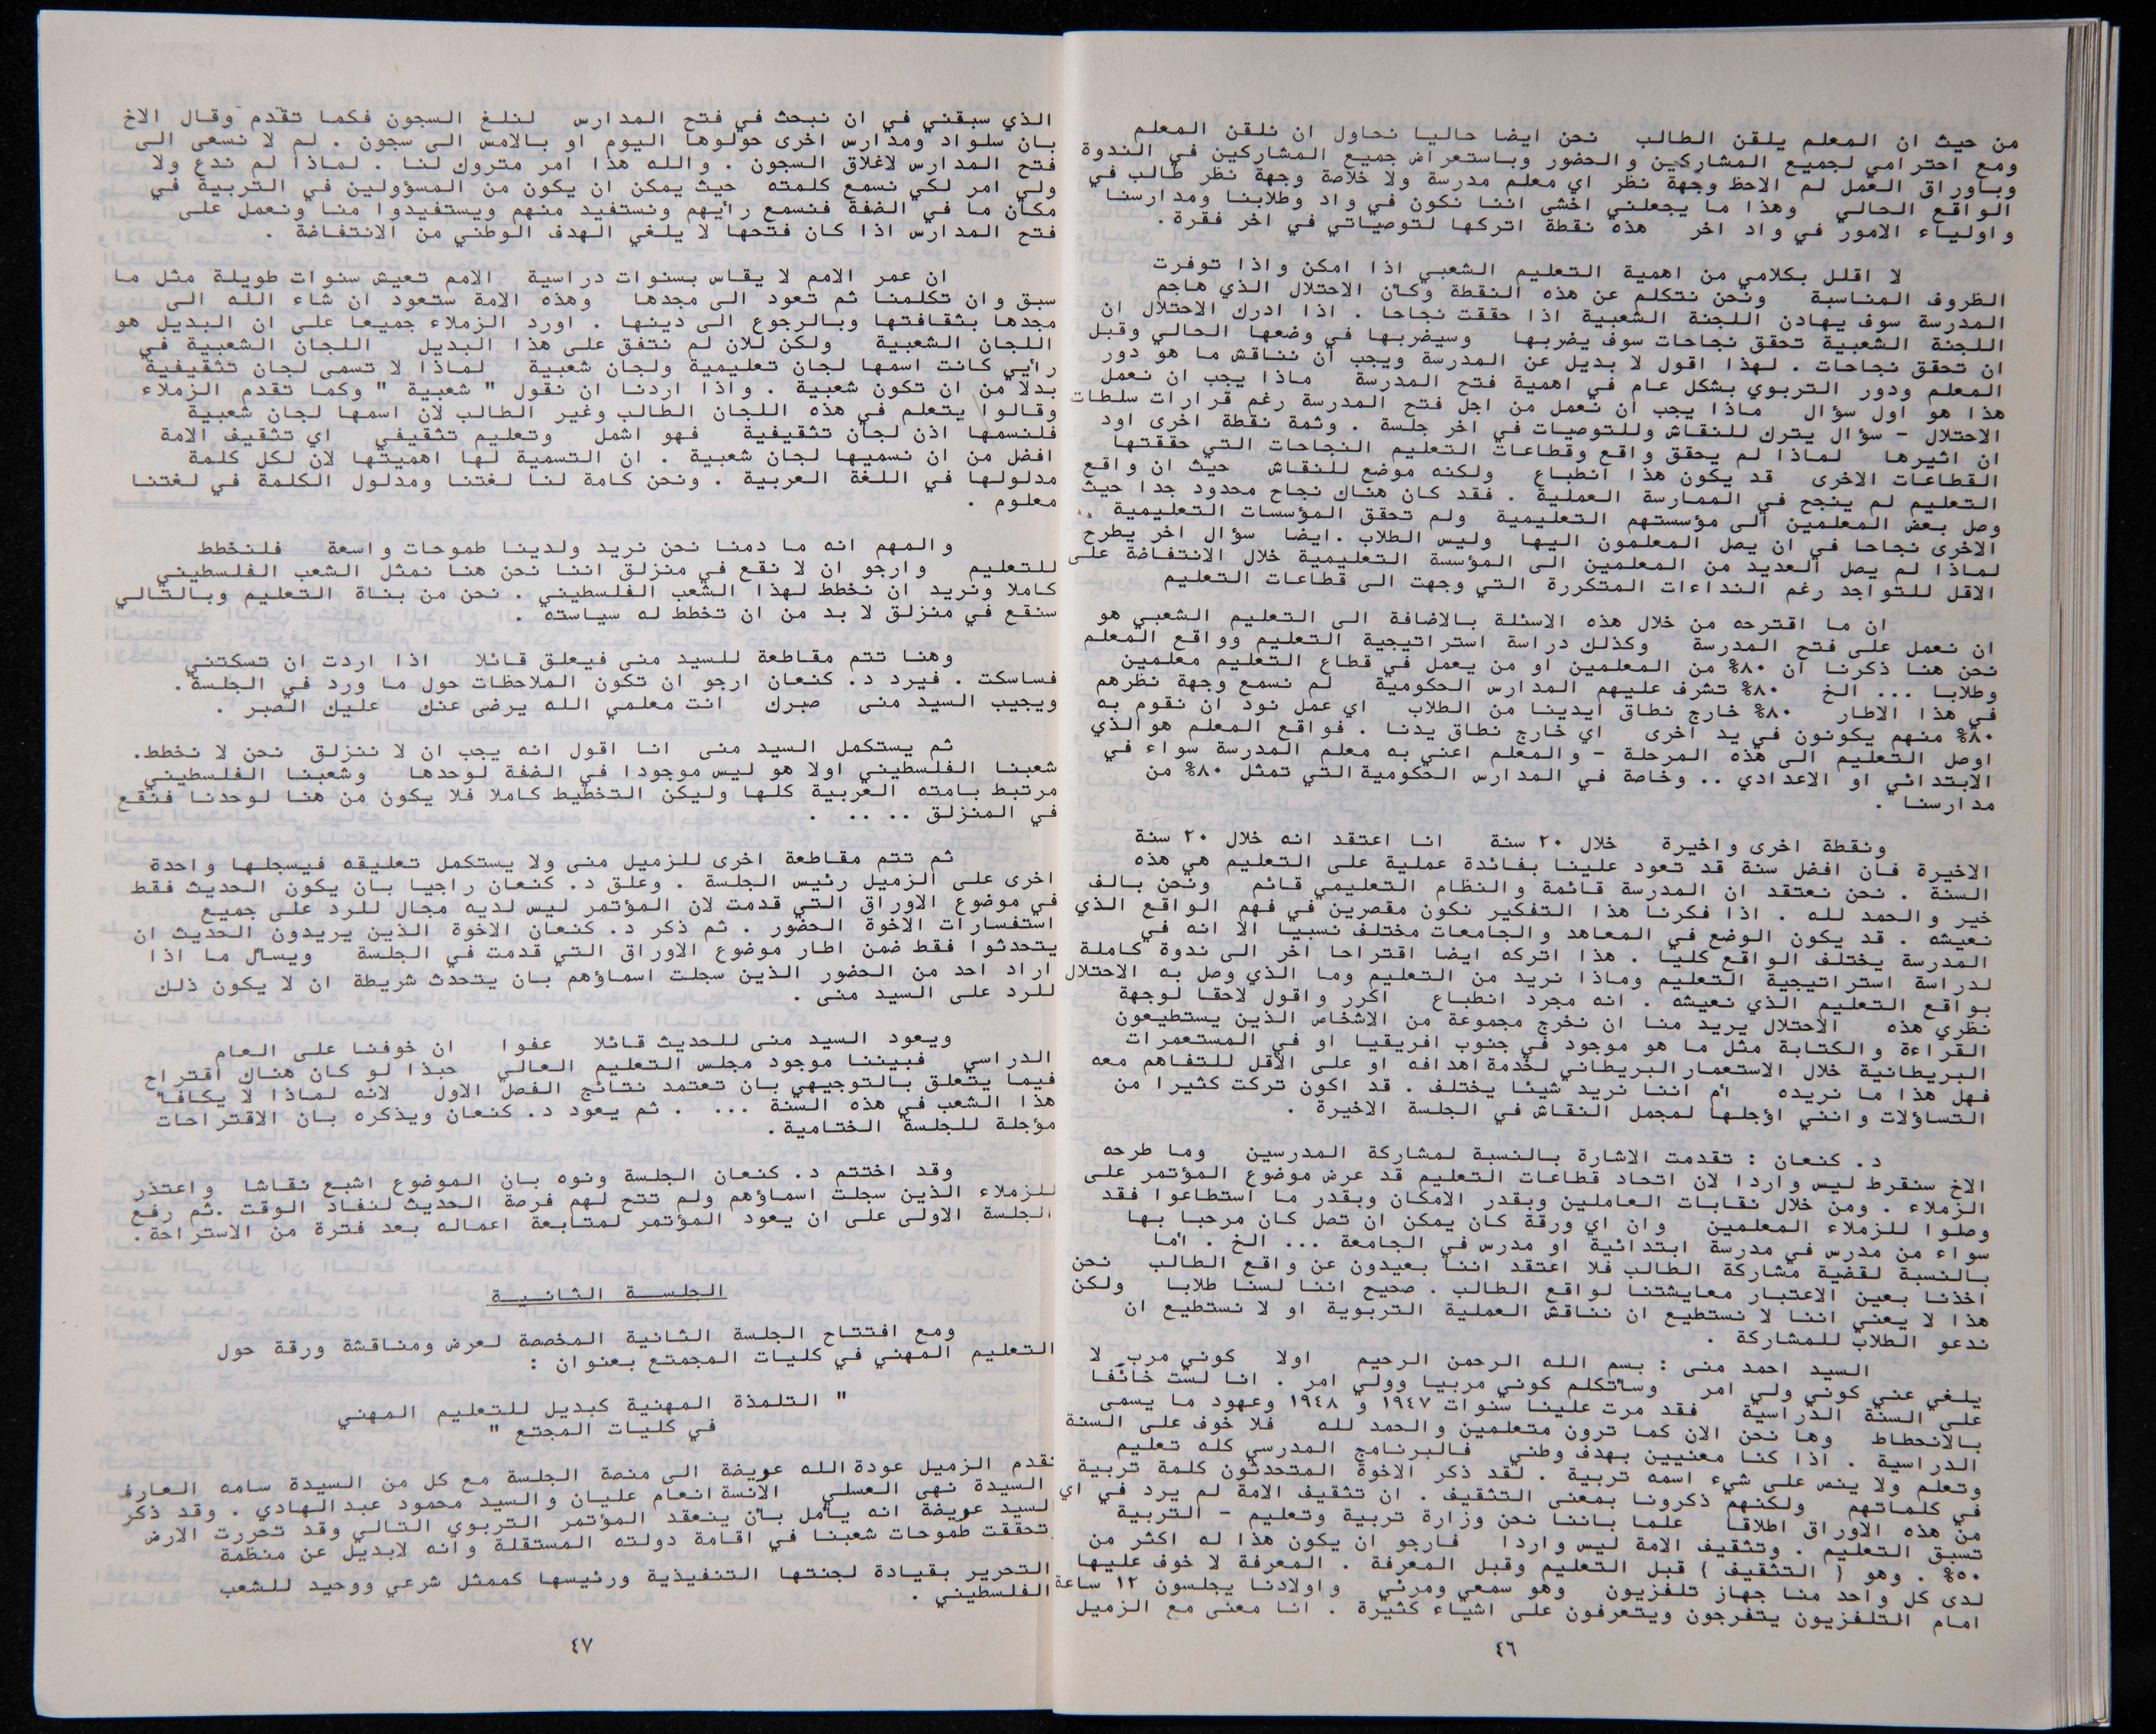 من حيث ان المعلم يلقن الطالب نحن ايضا حاليا نحاول ان نلقن المعلم
ومع احترامي لجميع المشاركين والحضور وباستعراض جميع المشاركين في الندوة
وباوراق العمل لم الاحظ وجهة نظر اي معلم مدرسة ولا خلاصة وجهة نظر طالب في
الواقع الحالي وهذا ما يجعلني اخشى اننا نكون في واد وطلابنا ومدارسنا
واولياء الامور في واد اخر هذه نقطة اتركها لتوصياتي في اخر فقرة .
لا اقلل بكلامي من اهمية التعليم الشعبي اذا امكن واذا توفرت
الظروف المناسبة ونحن نتكلم عن هذه النقطة وكأن الاحتلال الذي هاجم
المدرسة سوف يهادن اللجنة الشعبية اذا حققت نجاحا . اذا ادرك الاحتلال ان
اللجنة الشعبية تحقق نجاحات سوف يضربها وسيضربها في وضعها الحالي وقبل
ان تحقق نجاحات . لهذا اقول لا بديل عن المدرسة ويجب أن نناقش ما هو دور
المعلم ودور التربوي بشكل عام في اهمية فتح المدرسة ماذا يجب ان نعمل
هذا هو اول سؤال ماذا يجب ان نعمل من اجل فتح المدرسة رغم قرارات سلطات
الاحتلال - سؤال يترك للنقاش وللتوصيات في اخر جلسة . وثمة نقطة اخرى اود
ان اثيرها لماذا لم يحقق واقع وقطاعات التعليم النجاحات التي حققتها
القطاعات الاخرى قد يكون هذا انطباع ولكنه موضع للنقاش حيث ان واقع
التعليم لم ينجح في الممارسة العملية . فقد كان هناك نجاح محدود جدا حيث
وصل بعض المعلمين الى مؤسستهم التعليمية ولم تحقق المؤسسات التعليمية ..
الاخرى نجاحا في ان يصل المعلمون اليها وليس الطلاب .ايضا سؤال اخر يطرح
لماذا لم يصل العديد من المعلمين الى المؤسسة التعليمية خلال الانتفاضة على
الاقل للتواجد رغم النداءات المتكررة التي وجهت الى قطاعات التعليم
ان ما اقترحه من خلال هذه الاسئلة بالاضافة الى التعليم الشعبي هو
ان نعمل على فتح المدرسة وكذلك دراسة استراتيجية التعليم وواقع المعلم
نحن هنا ذكرنا ان ٨٠% من المعلمين او من يعمل في قطاع التعليم معلمين
وطلابا ... الخ ٨٠% تشرف عليهم المدارس الحكومية لم نسمع وجهة نظرهم
في هذا الاطار ٨٠% خارج نطاق ايدينا من الطلاب اي عمل نود ان نقوم به
٨٠% منهم يكونون في يد اخرى اي خارج نطاق يدنا . فواقع المعلم هو الذي
اوصل التعليم الى هذه المرحلة - والمعلم اعني به معلم المدرسة سواء في
الابتدائي او الاعدادي .. وخاصة في المدارس الحكومية التي تمثل ٨٠% من
مدارسنا .
ونقطة اخرى واخيرة خلال ٢٠ سنة انا اعتقد انه خلال ٢٠ سنة
الاخيرة فان افضل سنة قد تعود علينا بفائدة عملية على التعليم هي هذه
السنة . نحن نعتقد ان المدرسة قائمة والنظام التعليمي قائم ونحن بالف
خير والحمد لله . اذا فكرنا هذا التفكير نكون مقصرين في فهم الواقع الذي
نعيشه . قد يكون الوضع في المعاهد والجامعات مختلف نسبيا الا انه في
المدرسة يختلف الواقع كليا . هذا اتركه ايضا اقتراحا اخر الى ندوة كاملة
لدراسة استراتيجية التعليم وماذا نريد من التعليم وما الذي وصل به الاحتلال
بواقع التعليم الذي نعيشه . انه مجرد انطباع اكرر واقول لاحقا لوجهة
نظري هذه الاحتلال يريد منا ان نخرج مجموعة من الاشخاص الذين يستطيعون
القراءة والكتابة مثل ما هو موجود في جنوب افريقيا او في المستعمرات
البريطانية خلال الاستعمار البريطاني لخدمة اهدافه او على الاقل للتفاهم معه
فهل هذا ما نريده أم اننا نريد شيئا يختلف . قد اكون تركت كثيرا من
التساؤلات وانني اؤجلها لمجمل النقاش في الجلسة الاخيرة .
د. كنعان : تقدمت الاشارة بالنسبة لمشاركة المدرسين وما طرحه
الاخ سنقرط ليس واردا لان اتحاد قطاعات التعليم قد عرض موضوع المؤتمر على
الزملاء . ومن خلال نقابات العاملين وبقدر الامكان وبقدر ما استطاعوا فقد
وصلوا للزملاء المعلمين وان اي ورقة كان يمكن ان تصل كان مرحبا بها
سواء من مدرس في مدرسة ابتدائية او مدرس في الجامعة ... الخ . أما
بالنسبة لقضية مشاركة الطالب فلا اعتقد اننا بعيدون عن واقع الطالب نحن
اخذنا بعين الاعتبار معايشتنا لواقع الطالب . صحيح اننا لسنا طلابا ولكن
هذا لا يعني اننا لا نستطيع ان نناقش العملية التربوية او لا نستطيع ان
ندعو الطلاب للمشاركة .
السيد احمد منى : بسم الله الرحمن الرحيم اولا كوني مرب لا
يلغي عني كوني ولي امر وسأتكلم كوني مربيا وولي امر . انا لست خائفا
على السنة الدراسية فقد مرت علينا سنوات ١٩٤٧ و ١٩٤٨ وعهود ما يسمى
بالانحطاط وها نحن الان كما ترون متعلمين والحمد لله فلا خوف على السنة
الدراسية . اذا كنا معنيين بهدف وطني فالبرنامج المدرسي كله تعليم
وتعلم ولا ينص على شيء اسمه تربية . لقد ذكر الاخوة المتحدثون كلمة تربية
في كلماتهم ولكنهم ذكرونا بمعنى التثقيف . ان تثقيف الامة لم يرد في اي
من هذه الاوراق اطلاقا علما باننا نحن وزارة تربية وتعليم - التربية
تسبق التعليم . وتثقيف الامة ليس واردا فارجو ان يكون هذا له اكثر من
٥٠% . وهو ( التثقيف ) قبل التعليم وقبل المعرفة . المعرفة لا خوف عليها
لدى كل واحد منا جهاز تلفزيون وهو سمعي ومرئي واولادنا يجلسون ١٢ ساعة
امام التلفزيون يتفرجون ويتعرفون على اشياء كثيرة . انا معنى مع الزميل
٤٦
الذي سبقني في ان نبحث في فتح المدارس لنلغ السجون فكما تقدم وقال الاخ
بان سلواد ومدارس اخرى حولوها اليوم او بالامس الى سجون . لم لا نسعى الى
فتح المدارس لاغلاق السجون . والله هذا امر متروك لنا . لماذا لم ندع ولا
ولي امر لكي نسمع كلمته حيث يمكن ان يكون من المسؤولين في التربية في
مكان ما في الضفة فنسمع رأيهم ونستفيد منهم ويستفيدوا منا ونعمل على
فتح المدارس اذا كان فتحها لا يلغي الهدف الوطني من الانتفاضة .
ان عمر الامم لا يقاس بسنوات دراسية الامم تعيش سنوات طويلة مثل ما
سبق وان تكلمنا ثم تعود الى مجدها وهذه الامة ستعود ان شاء الله الى
مجدها بثقافتها وبالرجوع الى دينها . اورد الزملاء جميعا على ان البديل هو
اللجان الشعبية ولكن للان لم نتفق على هذا البديل اللجان الشعبية في
رأيي كانت اسمها لجان تعليمية ولجان شعبية لماذا لا تسمى لجان تثقيفية
بدلا من ان تكون شعبية . واذا اردنا ان نقول " شعبية " وكما تقدم الزملاء
وقالوا يتعلم في هذه اللجان الطالب وغير الطالب لان اسمها لجان شعبية
فلنسمها اذن لجان تثقيفية فهو اشمل وتعليم تثقيفي اي تثقيف الامة
افضل من ان نسميها لجان شعبية . ان التسمية لها اهميتها لان لكل كلمة
مدلولها في اللغة العربية . ونحن كامة لنا لغتنا ومدلول الكلمة في لغتنا
معلوم .
والمهم انه ما دمنا نحن نريد ولدينا طموحات واسعة فلنخطط
للتعليم وارجو ان لا نقع في منزلق اننا نحن هنا نمثل الشعب الفلسطيني
كاملا ونريد ان نخطط لهذا الشعب الفلسطيني . نحن من بناة التعليم وبالتالي
سنقع في منزلق لا بد من ان تخطط له سياسته .
وهنا تتم مقاطعة للسيد منى فيعلق قائلا اذا اردت ان تسكتني
فساسكت . فيرد د. كنعان ارجو ان تكون الملاحظات حول ما ورد في الجلسة .
ويجيب السيد منى صبرك انت معلمي الله يرضى عنك عليك الصبر .
ثم يستكمل السيد منى انا اقول انه يجب ان لا ننزلق نحن لا نخطط .
شعبنا الفلسطيني اولا هو ليس موجودا في الضفة لوحدها وشعبنا الفلسطيني
مرتبط بامته العربية كلها وليكن التخطيط كاملا فلا يكون من هنا لوحدنا فنقع
في المنزلق .. .. .
ثم تتم مقاطعة اخرى للزميل منى ولا يستكمل تعليقه فيسجلها واحدة
اخرى على الزميل رئيس الجلسة . وعلق د. كنعان راجيا بان يكون الحديث فقط
في موضوع الاوراق التي قدمت لان المؤتمر ليس لديه مجال للرد على جميع
استفسارات الاخوة الحضور . ثم ذكر د. كنعان الاخوة الذين يريدون الحديث ان
يتحدثوا فقط ضمن اطار موضوع الاوراق التي قدمت في الجلسة ويسأل ما اذا
اراد احد من الحضور الذين سجلت اسماؤهم بان يتحدث شريطة ان لا يكون ذلك
للرد على السيد منى .
ويعود السيد منى للحديث قائلا عفوا ان خوفنا على العام
الدراسي فبيننا موجود مجلس التعليم العالي حبذا لو كان هناك اقتراح
فيما يتعلق بالتوجيهي بان تعتمد نتائج الفصل الاول لانه لماذا لا يكافأ
هذا الشعب في هذه السنة ... . ثم يعود د. كنعان ويذكره بان الاقتراحات
مؤجلة للجلسة الختامية .
وقد اختتم د. كنعان الجلسة ونوه بان الموضوع اشبع نقاشا واعتذر
للزملاء الذين سجلت اسماؤهم ولم تتح لهم فرصة الحديث لنفاد الوقت .ثم رفع
الجلسة الاولى على ان يعود المؤتمر لمتابعة اعماله بعد فترة من الاستراحة .
الجلســة الثانـيــة
ومع افتتاح الجلسة الثانية المخصصة لعرض ومناقشة ورقة حول
التعليم المهني في كليات المجمتع بعنوان :
" التلمذة المهنية كبديل للتعليم المهني
في كليات المجتع "
تقدم الزميل عودة الله عويضة الى منصة الجلسة مع كل من السيدة سامه العارف
السيدة نهى العسلي الانسة انعام عليان والسيد محمود عبد الهادي . وقد ذكر
السيد عويضة انه يأمل بأن ينعقد المؤتمر التربوي التالي وقد تحررت الارض
وتحققت طموحات شعبنا في اقامة دولته المستقلة وانه لابديل عن منظمة
التحرير بقيادة لجنتها التنفيذية ورئيسها كممثل شرعي ووحيد للشعب
الفلسطيني .
٤٧